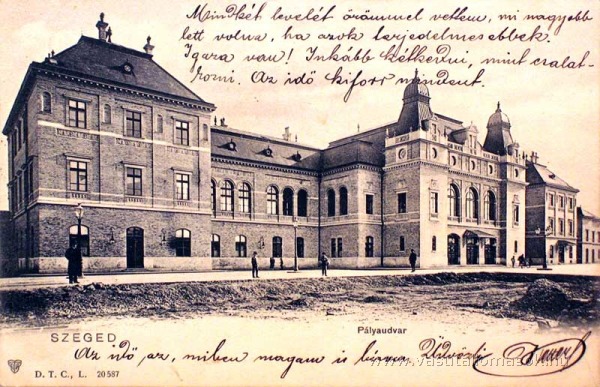 Mindkét levelét örömmel vettem, mi nagyobb
lett volna, ha azok terjedelmesebbek.
Igaza van! Inkább kételkedni, mint csalat-
kozni. Az idő kiforr mindent.
SZEGED
Pályaudvar
Az idő az, miben magam is bízom. Üdvözli
D. T. C., L. 20587
www.vasutallomasok.hu